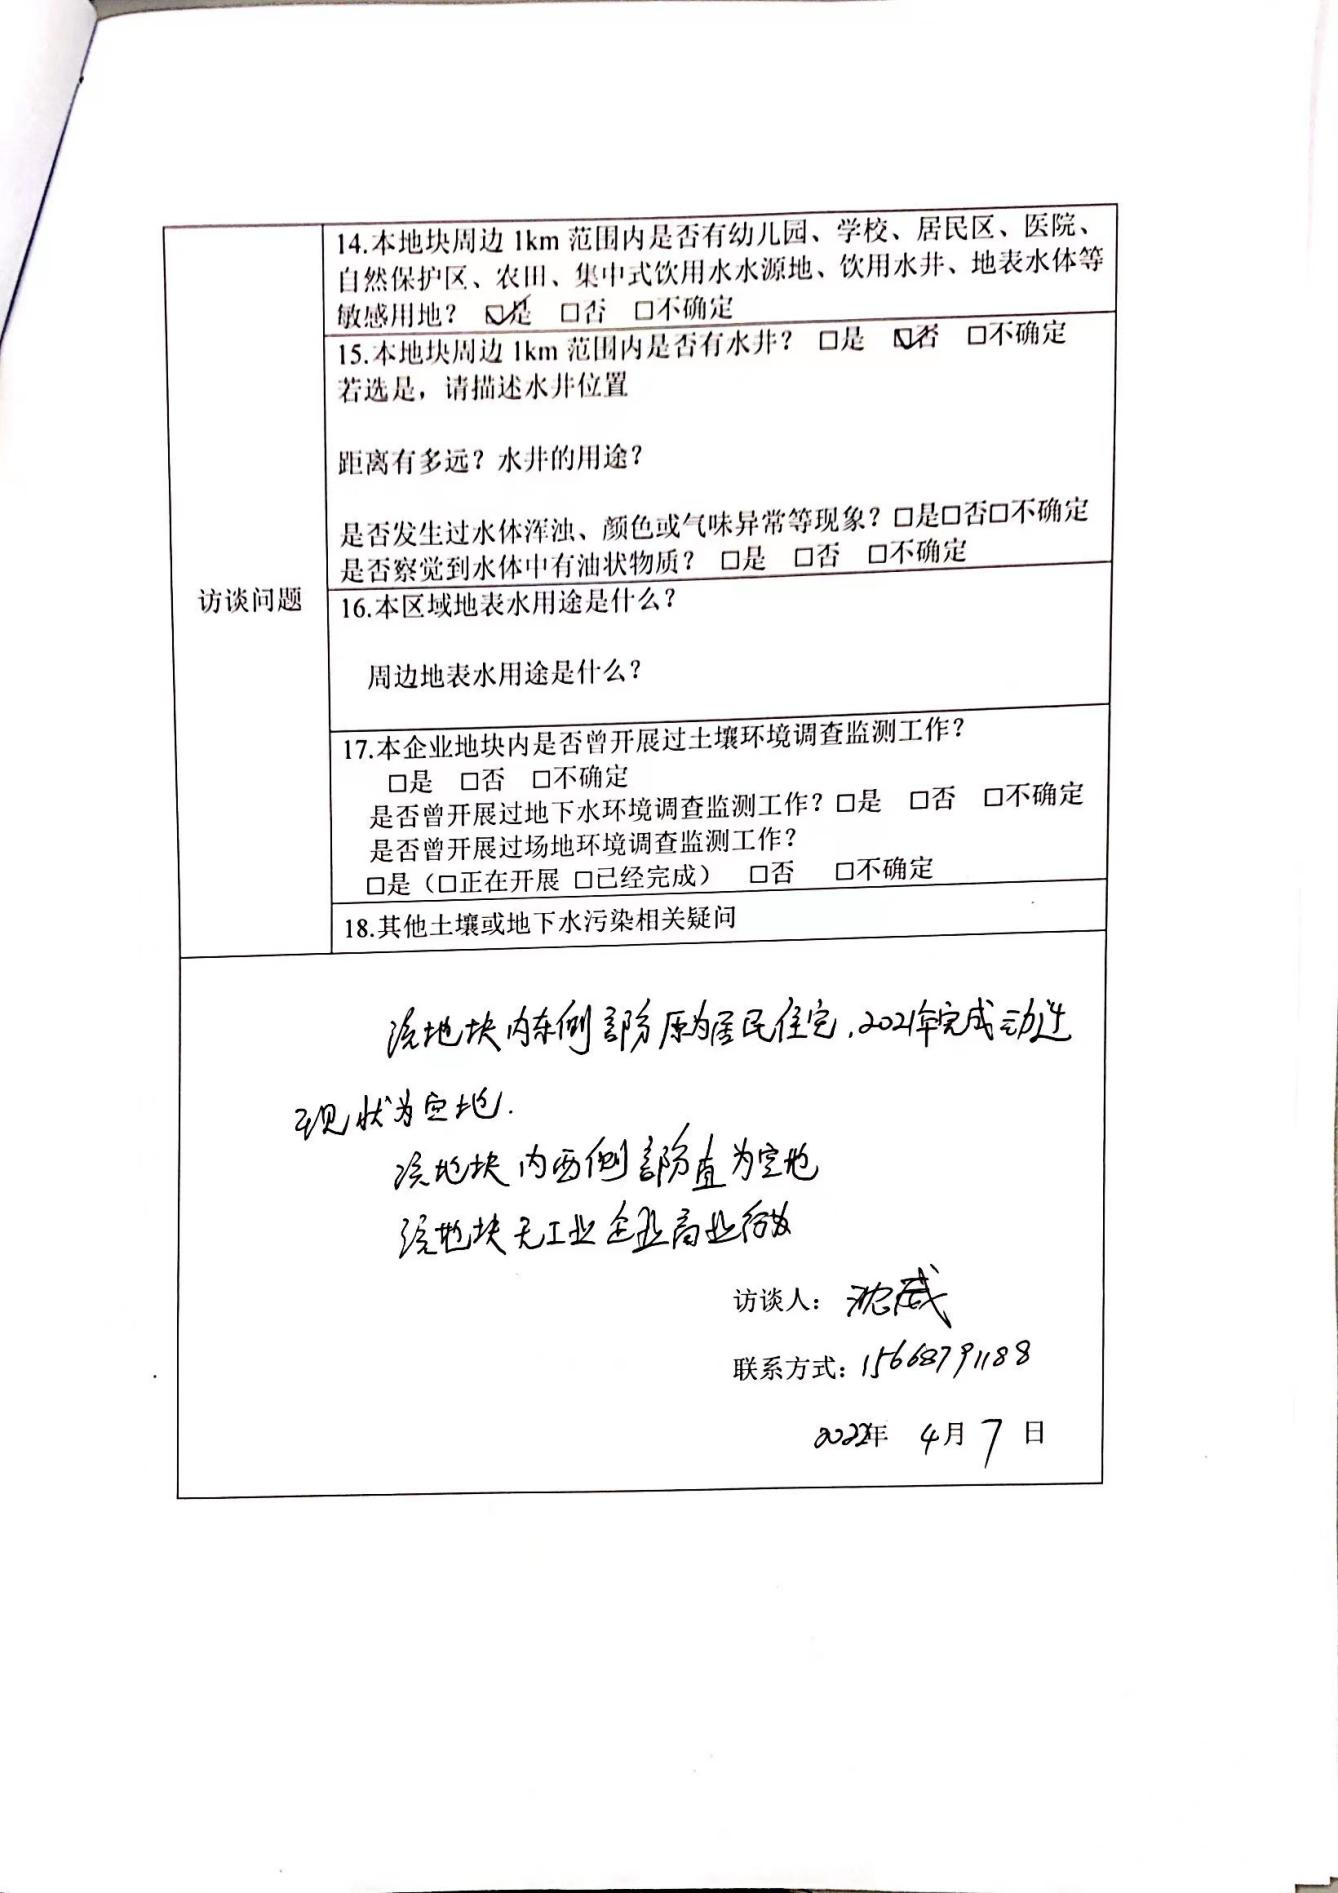 14.本地块周边 1km 范围内是否有幼儿园、学校、居民区、医院、
自然保护区、农田、集中式饮用水水源地、饮用水井、地表水体等
敏感用地? ☑是 □否 □不确定
15.本地块周边 1km 范围内是否有水井? □是 ☑否 □不确定
若选是,请描述水井位置
距离有多远?水井的用途?
是否发生过水体浑浊、颜色或气味异常等现象?□是□否□不确定
是否察觉到水体中有油状物质? □是 □否 □不确定
访谈问题
16.本区域地表水用途是什么?
周边地表水用途是什么?
17.本企业地块内是否曾开展过土壤环境调查监测工作?
□是 □否 □不确定
是否曾开展过地下水环境调查监测工作?□是 □否 □不确定
是否曾开展过场地环境调查监测工作?
□是(□正在开展 □已经完成) □否 □不确定
18.其他土壤或地下水污染相关疑问
该地块内东侧部分原为居民住宅,2021年完成动迁
现状为空地.
该地块内西侧部分直为空地
该地块无工业企业商业行为
访谈人: 沈威
联系方式: 15668791188
2022年 4月 7 日